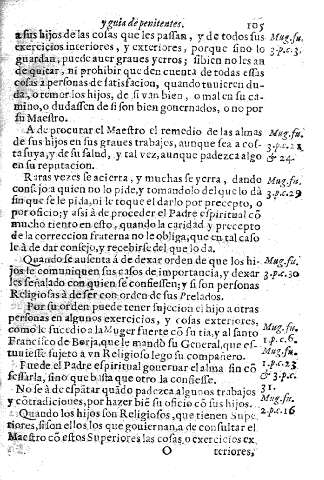 y guia de penitentes. 105
a sus hijos de las cosas que les passan, y de todos sus Mug.fu.
exercicios interiores, y exteriores, porque sino lo 3.p.c.3.
guardan, puede auer graues yerros; si bien no les an
de quitar, ni prohibir que den cuenta de todas essas
cosas a personas de satisfacion, quando tuuieren du-
da, o temor los hijos, de si van bien, o mal en su ca-
mino, o dudassen de si son bien gouernados, o no por
su Maestro.
A de procurar el Maestro el remedio de las almas Mug.fu.
de sus hijos en sus graues trabajos, aunque sea a cos- 3.p.c.21
ta suya, y de su salud, y tal vez, aunque padezca algo & 24.
en su reputacion.
Raras vezes se acierta, y muchas se yerra, dando Mug.fu.
consejo a quien no lo pide, y tomandolo del que lo dà 3.p.c.29
sin que se le pida, ni le toque el darlo por precepto, o
por oficio; y assi à de proceder el Padre espiritual cõ
mucho tiento en esto, quando la caridad y precepto
de la correccion fraterna no le obliga, que en tal caso
le à de dar consejo, y recebirse del que lo da.
Quando se ausenta á de dexar orden de que los hi- Mug.fu.
jos se comuniquen sus casos de importancia, y dexar 3.p.c.30
les señalado con quien se confiessen; y si son personas
Religiosas à de ser con orden de sus Prelados.
Por su orden puede tener sujecion el hijo a otras
personas en algunos exercicios, y cosas exteriores,
como le sucedio a la Muger fuerte cõ su tia, y al santo Mug.fu.
Francisco de Borja, que le mandò su General, que es- 1.p.c.6.
tuuiesse sujeto a vn Religioso lego su compañero. Mug.fu.
Puede el Padre espiritual gouernar el alma sin cõ 1.p.c.23
fessarla, sino que basta que otro la confiesse. & 3.p.c.
No se à de espãtar quãdo padezca algunos trabajos 31.
y cõtradiciones, por hazer biẽ su oficio cõ sus hijos. Mug.fu.
Quando los hijos son Religiosos, que tienen Supe 2.p.c.16
riores, si son ellos los que gouiernan, a de consultar el
Maestro cõ estos Superiores las cosas, o exercicios ex
O teriores,